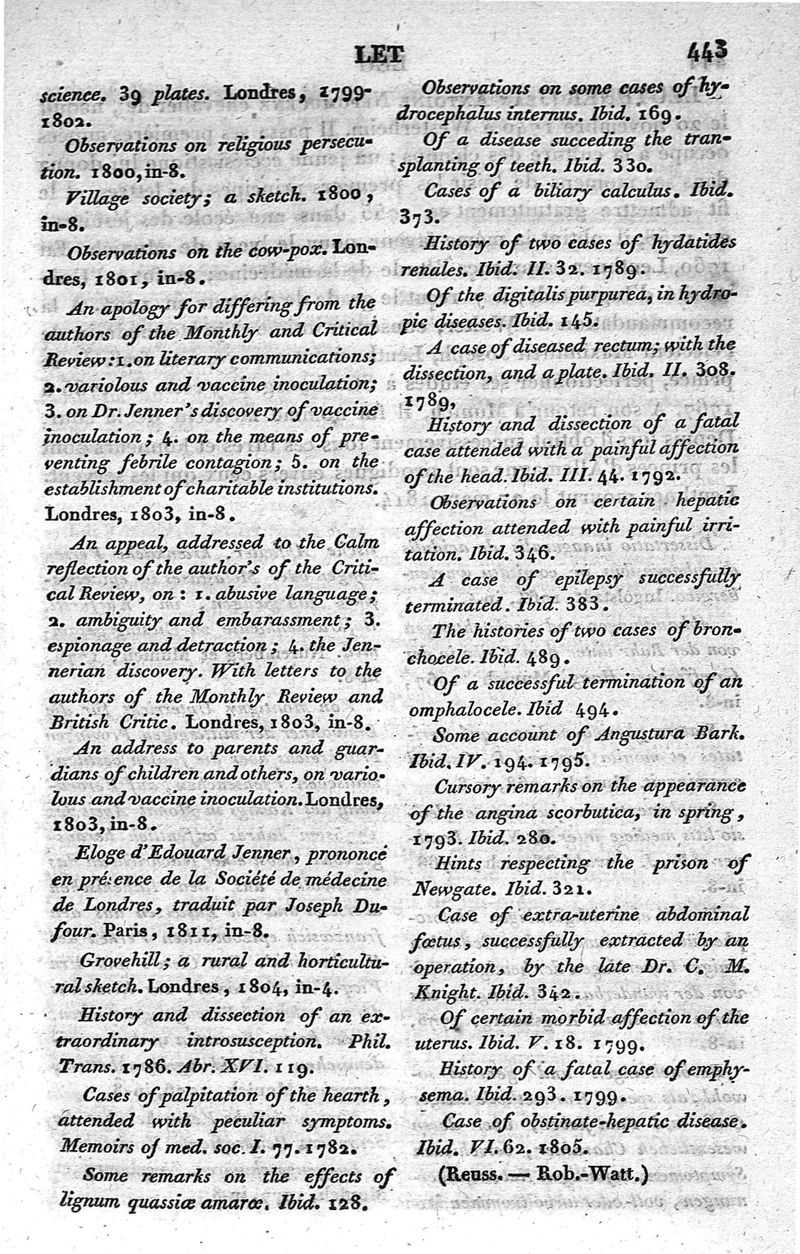 LET 443
science. 39 plates. Londres, 1799-
1802.
Observations on religious persecu-
tion. 1800, in-8.
Village society; a sketch. 1800,
in-8.
Observations on the cow-pox. Lon-
dres, 1801, in-8.
An apology for differing from the
authors of the Monthly and Critical
Review: 1. on literary communications;
2. variolous and vaccine inoculation;
3. on Dr. Jenner's discovery of vaccine
inoculation; 4. on the means of pre-
venting febrile contagion; 5. on the
establishment of charitable institutions.
Londres, 1803, in-8.
An appeal, addressed to the Calm
reflection of the author's of the Criti-
cal Review, on: 1. abusive language;
2. ambiguity and embarassment; 3.
espionage and detraction; 4. the Jen-
nerian discovery. With letters to the
authors of the Monthly Review and
British Critic. Londres, 1803, in-8.
An address to parents and guar-
dians of children and others, on vario-
lous and vaccine inoculation. Londres,
1803, in-8.
Eloge d'Edouard Jenner, prononcé
en présence de la Société de médecine
de Londres, traduit par Joseph Du-
four. Paris, 1811, in-8.
Grovehill; a rural and horticultu-
ral sketch. Londres, 1804, in-4.
History and dissection of an ex-
traordinary introsusception. Phil.
Trans. 1786. Abr. XVI. 119.
Cases of palpitation of the hearth,
attended with peculiar symptoms.
Memoirs of med. soc. I. 77. 1782.
Some remarks on the effects of
lignum quassiæ amaræ. Ibid. 128.
Observations on some cases of hy-
drocephalus internus. Ibid. 169.
Of a disease succeding the tran-
splanting of teeth. Ibid. 330.
Cases of a biliary calculus. Ibid.
373.
History of two cases of hydatides
renales. Ibid. II. 32. 1789.
Of the digitalis purpurea, in hydro-
pic diseases. Ibid. 145.
A case of diseased rectum; with the
dissection, and a plate. Ibid. II. 308.
1789,
History and dissection of a fatal
case attended with a painful affection
of the head. Ibid. III. 44. 1792.
Observations on certain hepatic
affection attended with painful irri-
tation. Ibid. 346.
A case of epilepsy successfully
terminated. Ibid. 383.
The histories of two cases of bron-
chocele. Ibid. 489.
Of a successful termination of an
omphalocele. Ibid 494.
Some account of Angustura Bark.
Ibid. IV. 194. 1795.
Cursory remarks on the appearance
of the angina scorbutica, in spring,
1793. Ibid. 280.
Hints respecting the prison of
Newgate. Ibid. 321.
Case of extra-uterine abdominal
fœtus, successfully extracted by an
operation, by the late Dr. C. M.
Knight. Ibid. 342.
Of certain morbid affection of the
uterus. Ibid. V. 18. 1799.
History of a fatal case of emphy-
sema. Ibid. 293. 1799.
Case of obstinate-hepatic disease.
Ibid. VI. 62. 1805.
(Reuss. — Rob.-Watt.)